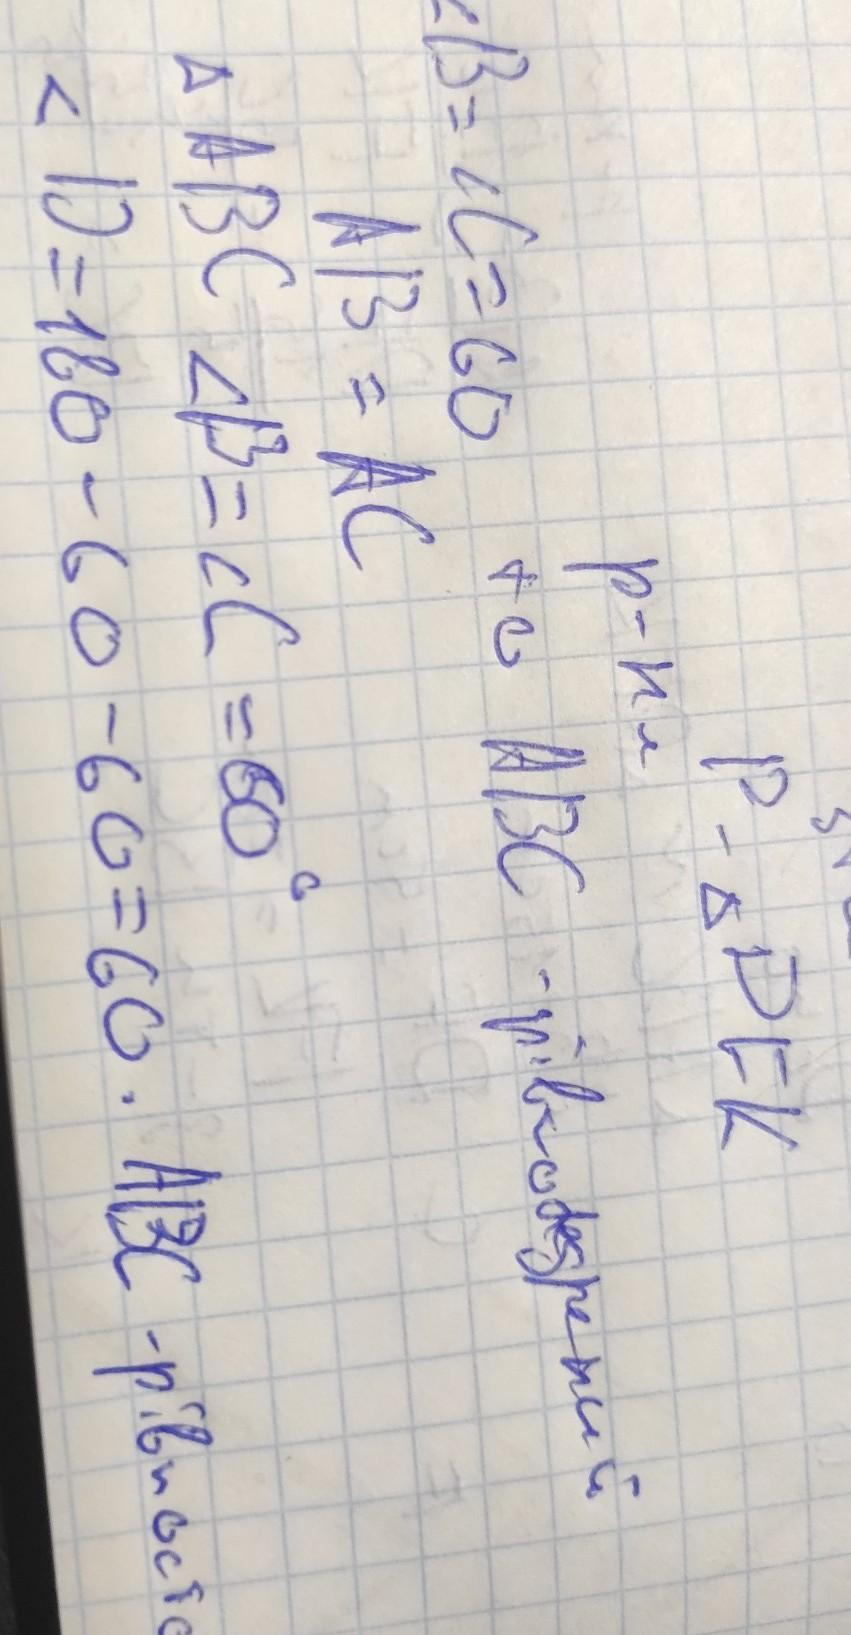 P-ΔDEK
р-ня
<B=<C=60 то ABC - рівнобедрений
AB = AC
ΔABC <B=<C=60°
<D=180-60-60=60. ABC - рівносто